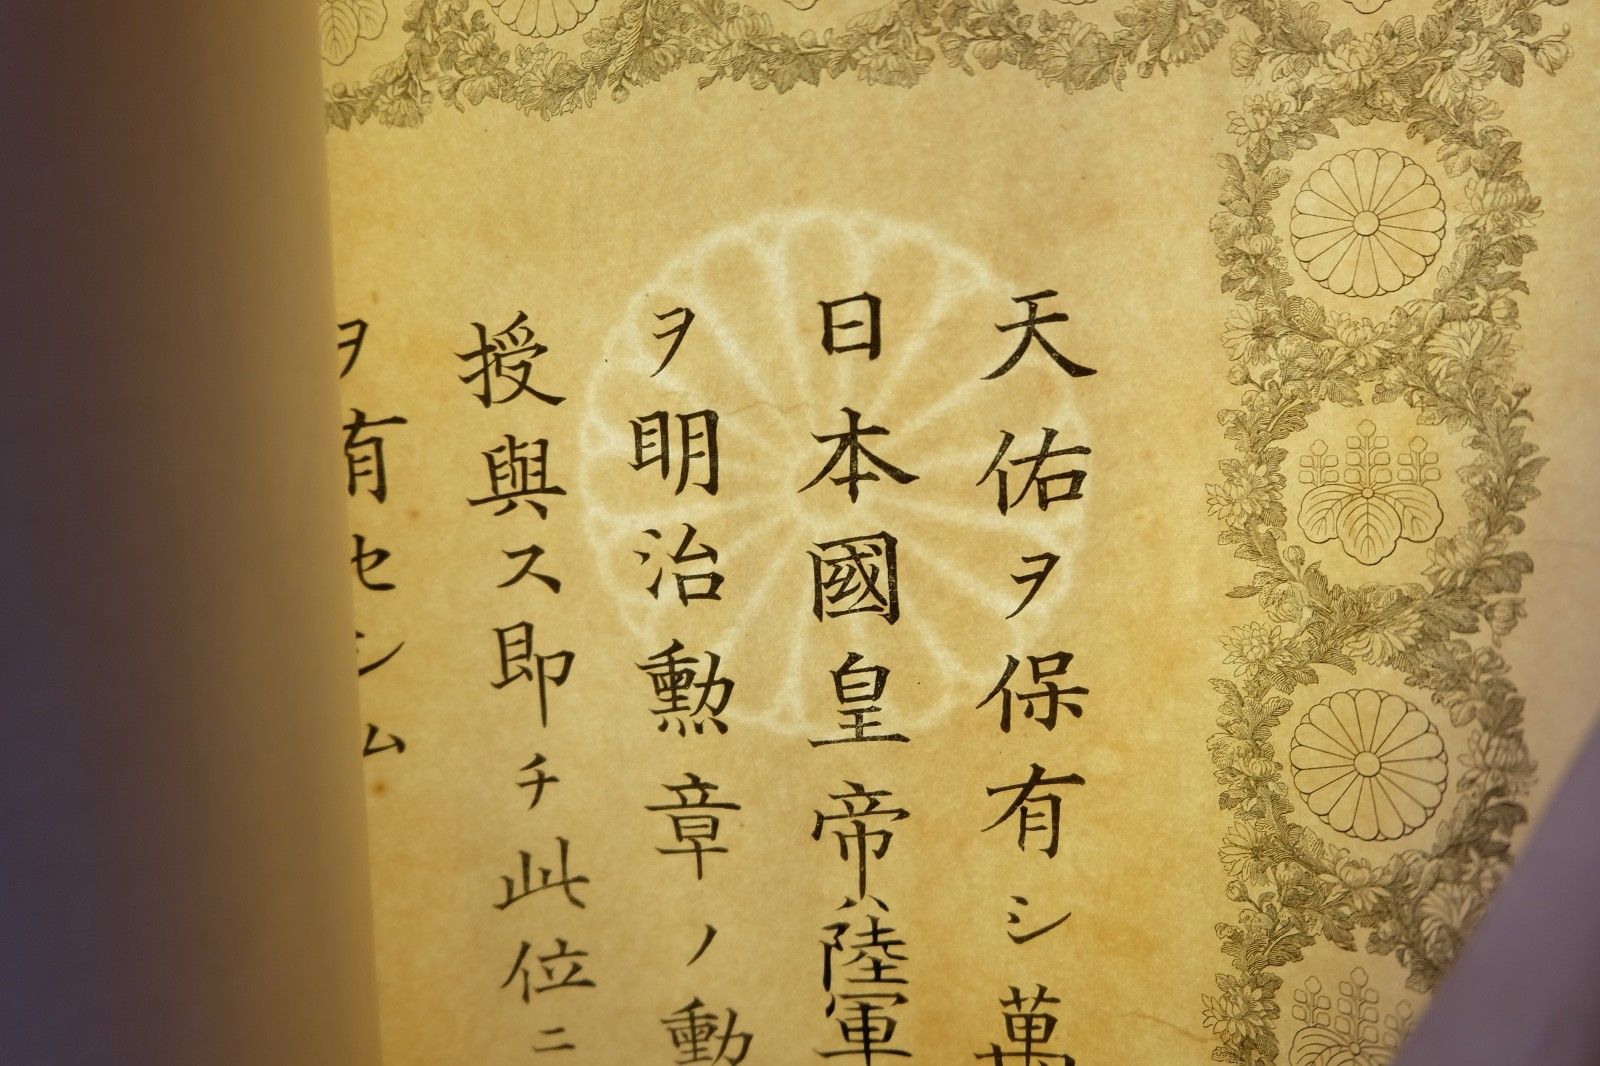 天佑ヲ保有シ萬
日本國皇帝ハ陸軍
ヲ明治勲章ノ勲
授與ス即チ此位ニ
ヲ有セシム